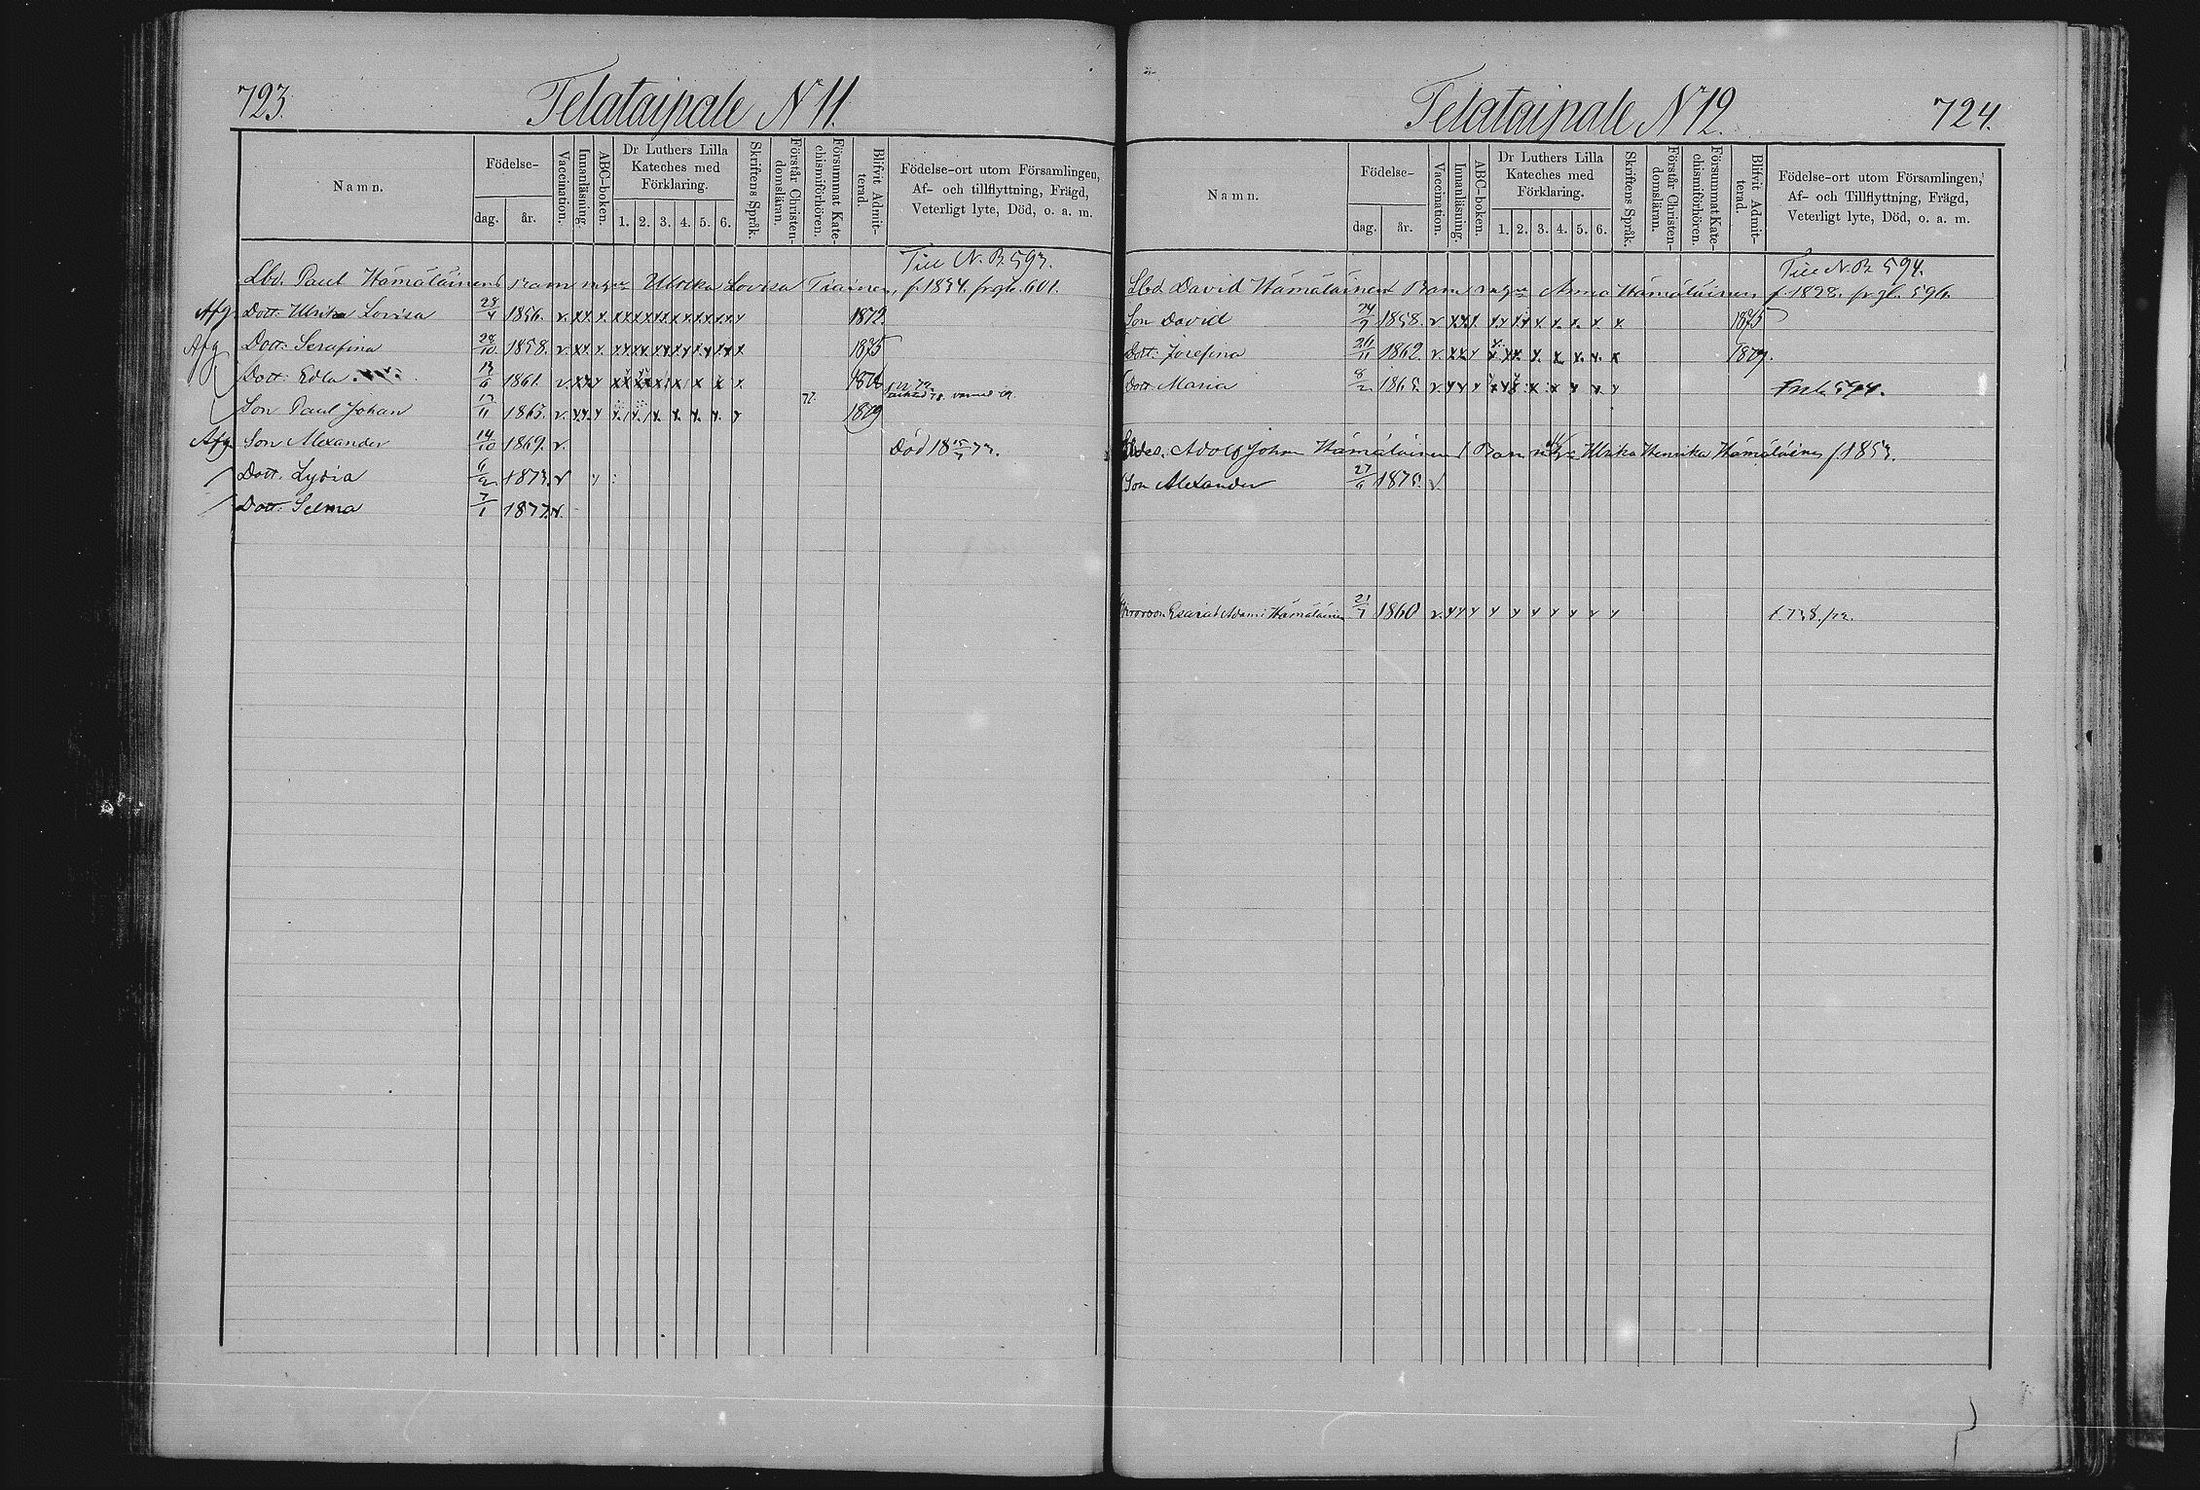 723.
Telataipale N 11.
Namn.
Födelse-
dag.
år.
Vaccination.
Innanläsning.
ABC-boken.
Dr Luthers Lilla
Kateches med
Förklaring.
1. 2. 3. 4. 5. 6.
Skriftens Språk.
Förstår Christen-
domsläran.
Försummat Kate-
chismiförhören.
Blifvit Admit-
terad.
Födelse-ort utom Församlingen,
Af- och tillflyttning, Frägd,
Veterligt lyte, Död, o. a. m.
Till N. B. 593.
Lbd. Paul Hämäläinens barn m Ulrika Lovisa Tiainen, f. 1834. frgb. 601.
Afg. Dott. Ulrika Lovisa 28/4 1856. v. 1872.
Afg Dott. Serafina 28/10 1858. v. 1875
Dott. Edla 1861. v.
Son Paul Johan 1865. v. 1879
Afg. Son Alexander 14/10 1869. v. Död 18 73.
Dott. Lydia 6/2 1873. v
Dott. Selma 7/1 1877. v.
Telataipale N 12.
724.
Namn.
Födelse-
dag.
år.
Vaccination.
Innanläsning.
ABC-boken.
Dr Luthers Lilla
Kateches med
Förklaring.
1. 2. 3. 4. 5. 6.
Skriftens Språk.
Förstår Christen-
domsläran.
Försummat Kate-
chismiförhören.
Blifvit Admit-
terad.
Födelse-ort utom Församlingen,
Af- och Tillflyttning, Frägd,
Veterligt lyte, Död, o. a. m.
Till N. B. 594.
Lbd David Hämäläinens Barn m Anna Hämäläinen f. 1828. frgb. 596.
Son David 24/9 1858. v 1875
Dott. Josefina 26/11 1862. v. 1879.
Dott Maria 8/2 1865. v 594.
Adolf Johan Hämäläinens Barn m Ulrika Henrika Hämäläinen f 1853.
Son Alexander 27/6 1875. v
Esaias Adami Hämäläinen 21/7 1860 v. f. 738.